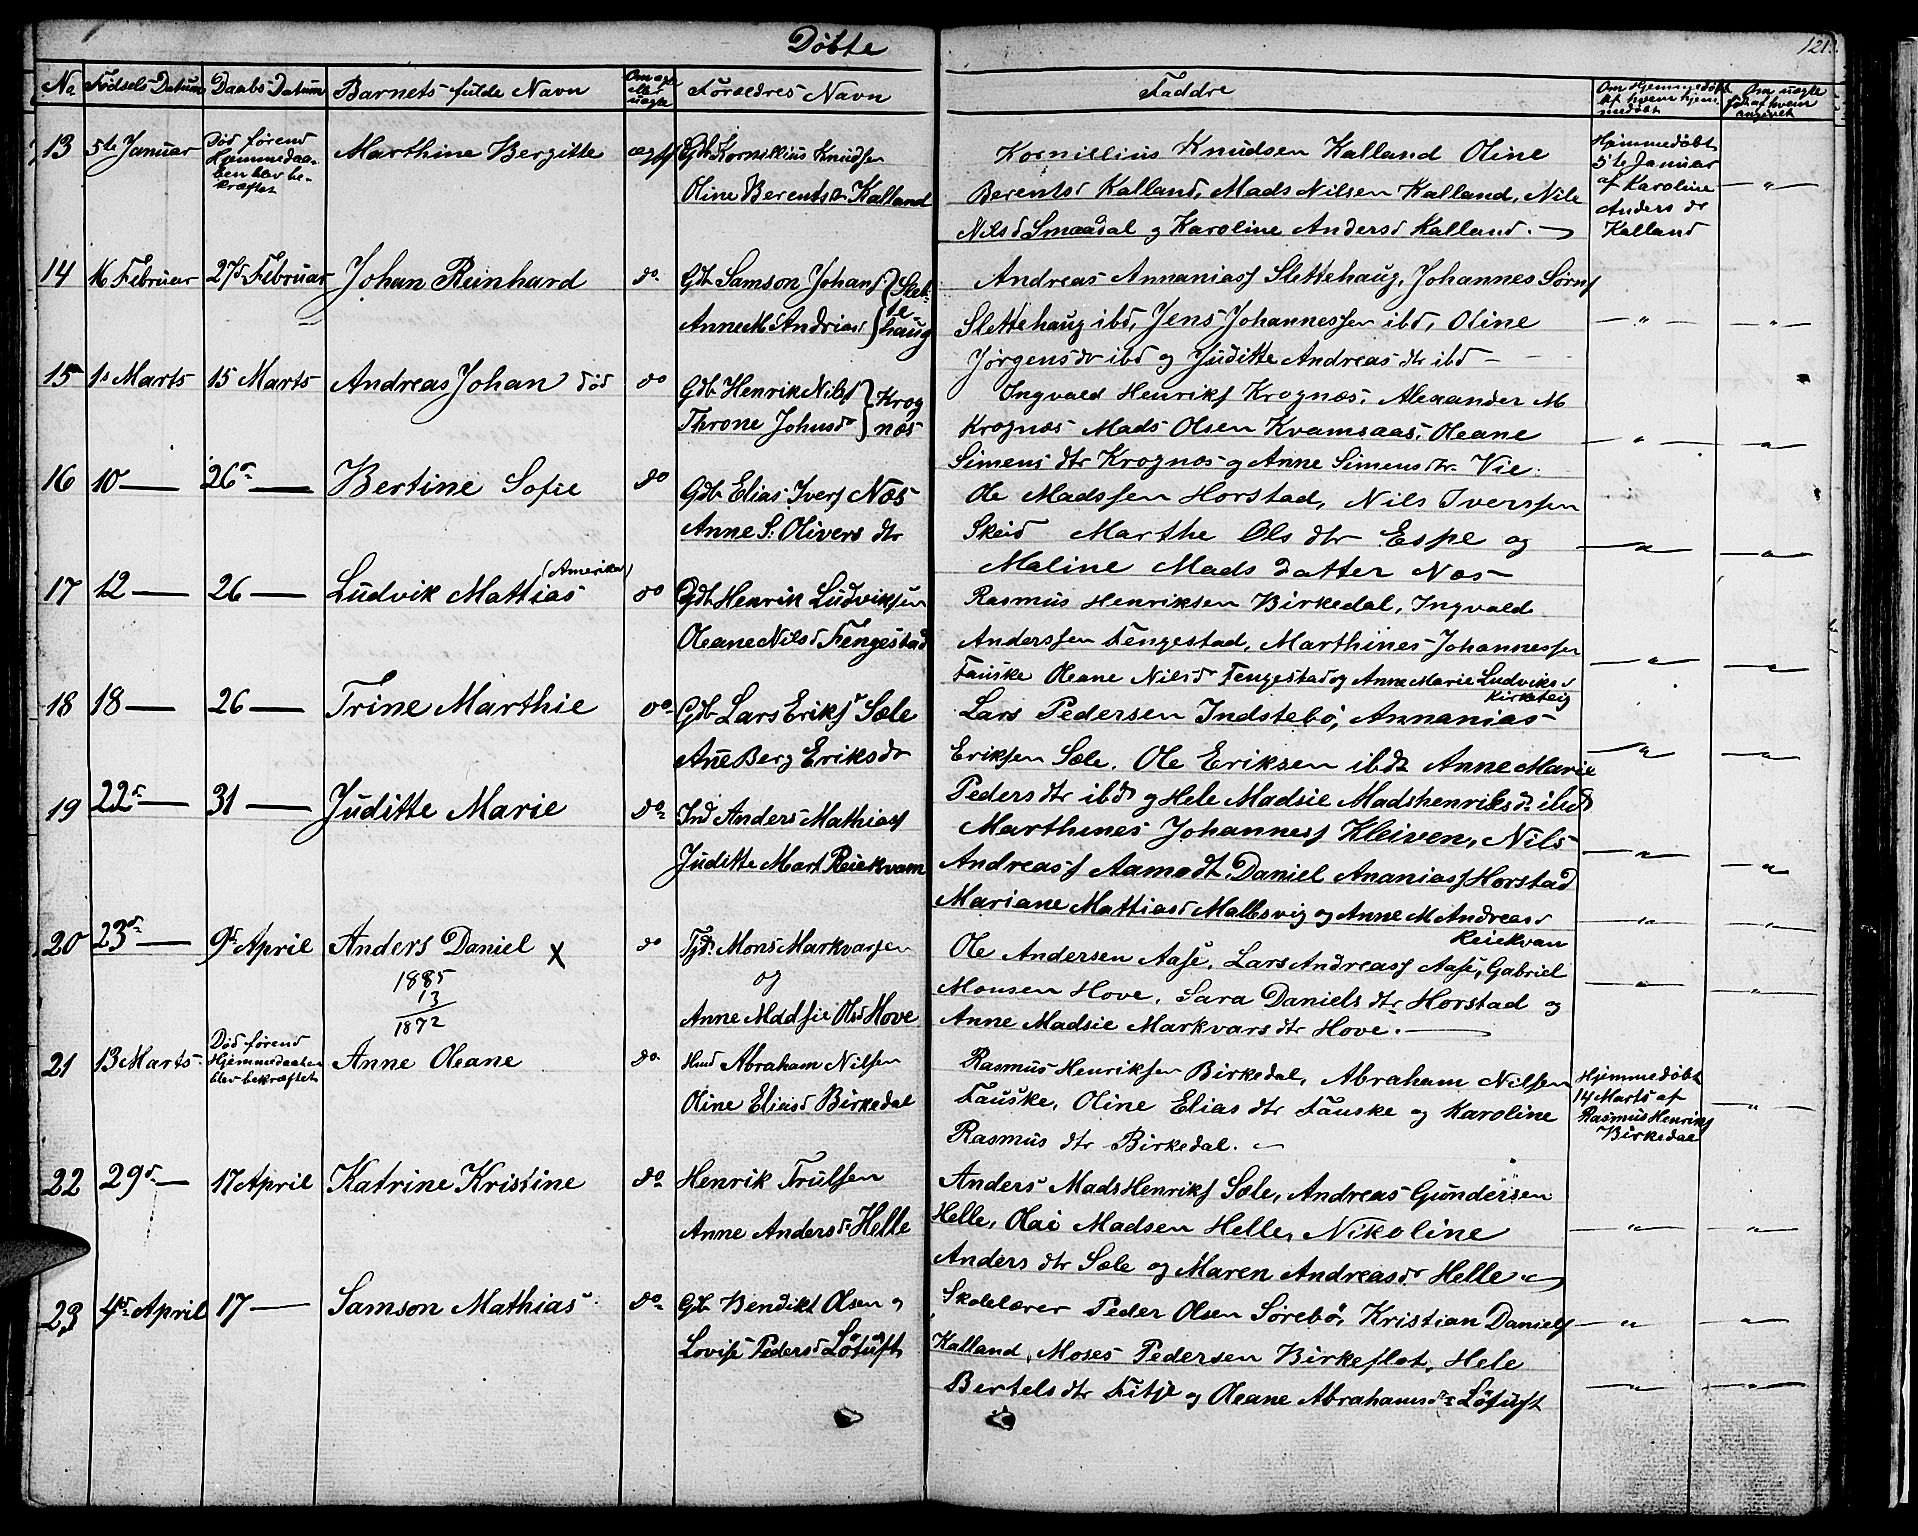 Døbte
121.
No Fødsels Datum Daabs Datum Barnets fulde Navn Om ægte eller uægte Forældres Navn Faddre Om Hjemmedøbt af hvem hjemmedøbt Om uægte
13 5te Januar Død førend Hjemmedaaben blev bekræftet Marthine Bergitte ægte Gdb Kornillius Knudsen
Oline Berentsdr Kalland
Kornillius Knudsen Kalland Oline
Berentsd Kalland, Mads Nilsen Kalland, Nile
Nilsd Smaadal og Karoline Andersd Kalland.
Hjemmedøbt
5te Januar
af Karoline
Anders dr
Kalland
14 16 Februar 27d Februar Johan Reinhard do. Gdb Samson Johans Slettehaug
Anne M Andriasd
Andreas Annanias Slettehaug, Johannes Sørns
Slettehaug ibd, Jens Johannessen ibd, Oline
Jørgensdr ibd og Juditte Andreas dtr ibd
15 1s Marts 15 Marts Andreas Johan død do Gdb Henrik Nils Krognæs
Throne Johnsdr
Ingvald Henriks Krognæs, Alexander M
Krognæs Mads Olsen Kvamsaas, Oleane
Simens dtr Krognæs og Anne Simensdtr Vie.
16 10 — 26d — Bertine Sofie do Gdb Elias Ivers Næs
Anne S. Olivers dtr
Ole Madssen Horstad, Nils Iverssen
Skeid Marthe Ols dtr Espe og
Maline Mads datter Næs
17 12 — 26 — Ludvik Mattias (Amerika) do Gdb Henrik Ludviksen
Oleane Nilsd Fengestad
Rasmus Henriksen Birkedal, Ingvald
Anderssen Fengestad, Marthines Johannessen
Fauske Oleane Nilsd Fengestad og Anne Marie Ludviksd
Kirketeig
18 18 — 26 — Trine Marthie do Gdb Lars Eriks Sæle
Ane Berg Eriksdr
Lars Pedersen Indstebø, Annanias
Eriksen Sæle. Ole Eriksen ibdt Anne Marie
Peders dtr ibd og Hele Madsie Madshenriksdr ibd
19 22d — 31 — Juditte Marie do Ind Anders Mathias
Juditte Mart Reiekvam
Marthines Johannes Kleiven, Nils
Andreass Aamodt, Daniel Ananiass Horstad
Mariane Mattiasd Malkesvig og Anne M Andreasd
Reiekvam
20 23d — 9d April Anders Daniel x do Mons Markvarsen
og
Anne Madsie Olsd Hove
1885
13
1872
Ole Andersen Aase, Lars Andreass Aase, Gabriel
Monsen Hove, Sara Daniels dtr Horstad og
Anne Madsie Markvars dtr Hove.
21 13 Marts Død førend Hjemmedaaben blev bekræftet Anne Oleane do. Hmd Abraham Nilsen
Oline Eliasd Birkedal
Rasmus Henriksen Birkedal, Abraham Nilssen
Fauske, Oline Elias dtr Fauske og Karoline
Rasmus dtr Birkedal.
Hjemmedøbt
14 Marts af
Rasmus Henriks
Birkedal
22 29d — 17 April Katrine Kristine do. Henrik Trulsen
Anne Andersd Helle
Anders Mads Henriks Sæle, Andreas Gundersen
Helle, Olai Madsen Helle, Nikoline
Anders dtr Sæle og Maren Andreasdr Helle
23 4de April 17 — Samson Mathias do. Gdb Bendikt Olsen og
Lovise Pedersd Løtuft
Skolelærer Peder Olsen Sørebø, Kristian Daniels
Kalland, Moses Pedersen Birkeflot, Hele
Bertels dtr Fitje og Oleane Abrahamsdr Løtuft